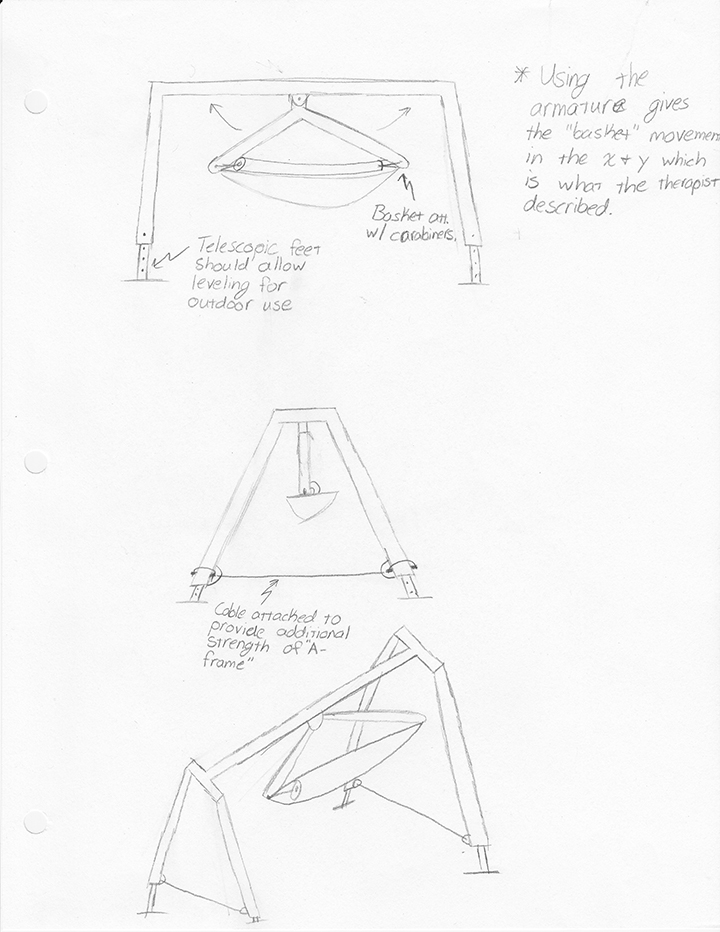 * Using the
armature gives
the "basket" movement
in the x + y which
is what the therapist
described.
Basket att.
w/ carabiners.
Telescopic feet
should allow
leveling for
outdoor use
Cable attached to
provide additional
strength of "A-
frame"